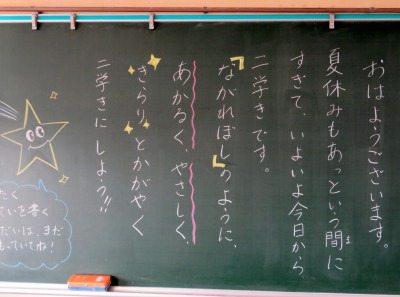 おはようございます。
夏休みもあっという間に
ま
すぎて、いよいよ今日から
二学きです。
『ながれぼし』のように、
あかるく、やさしく、
きらりとかがやく
二学きにしよう!!
たく
ていを書く
だいは、まだ
もっていてね!